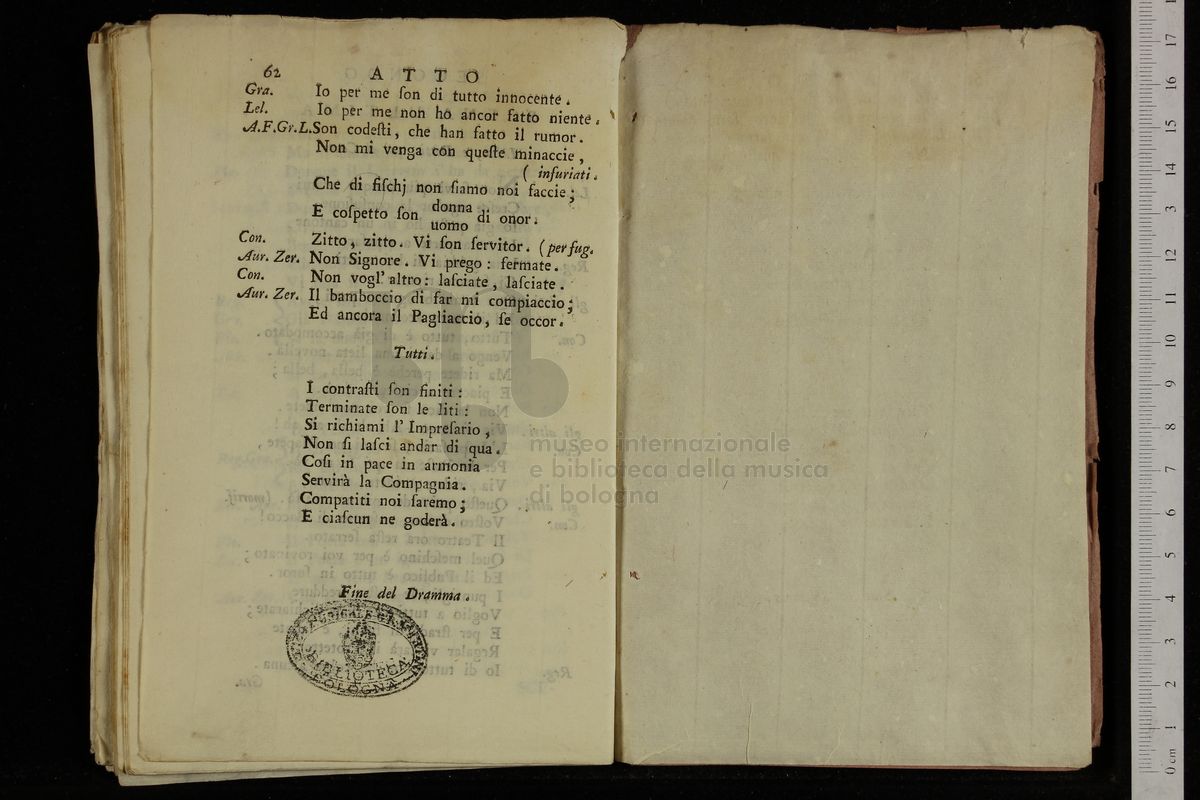 62 A T T O
Gra. Io per me ſon di tutto innocente.
Lel. Io per me non ho ancor fatto niente.
A.F.Gr.L. Son codeſti, che han fatto il rumor.
Non mi venga con queſte minaccie,
( infuriati.
Che di fiſchj non ſiamo noi faccie;
E coſpetto ſon donna di onor.
uomo
Con. Zitto, zitto. Vi ſon ſervitor. (per fug.
Aur. Zer. Non Signore. Vi prego: fermate.
Con. Non vogl' altro: laſciate, laſciate.
Aur. Zer. Il bamboccio di far mi compiaccio;
Ed ancora il Pagliaccio, ſe occor.
Tutti.
I contraſti ſon finiti:
Terminate ſon le liti:
Si richiami l' Impreſario,
Non ſi laſci andar di qua.
Coſi in pace in armonia
Servirà la Compagnia.
Compatiti noi ſaremo;
E ciaſcun ne goderà.
Fine del Dramma.
BIBLIOTECA
BOLOGNA
museo internazionale
e biblioteca della musica
di bologna
0 cm 1 2 3 4 5 6 7 8 9 10 11 12 13 14 15 16 17